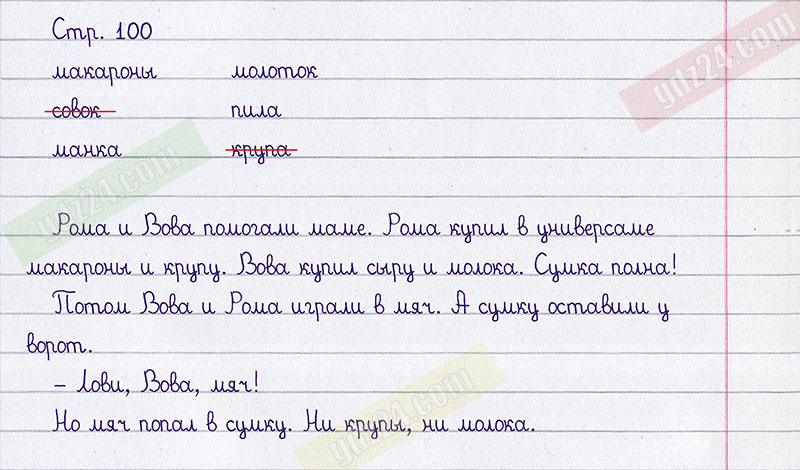 Стр. 100
макароны молоток
совок пила
манка крупа
Рома и Вова помогали маме. Рома купил в универсаме
макароны и крупу. Вова купил сыру и молока. Сумка полна!
Потом Вова и Рома играли в мяч. А сумку оставили у
ворот.
– Лови, Вова, мяч!
Но мяч попал в сумку. Ни крупы, ни молока.
ydz24.com
ydz24.com
ydz24.com